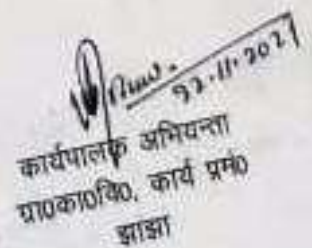 22.11.2021
कार्यपालक अभियन्ता
ग्रा०का०वि०, कार्य प्रमं०
झाझा